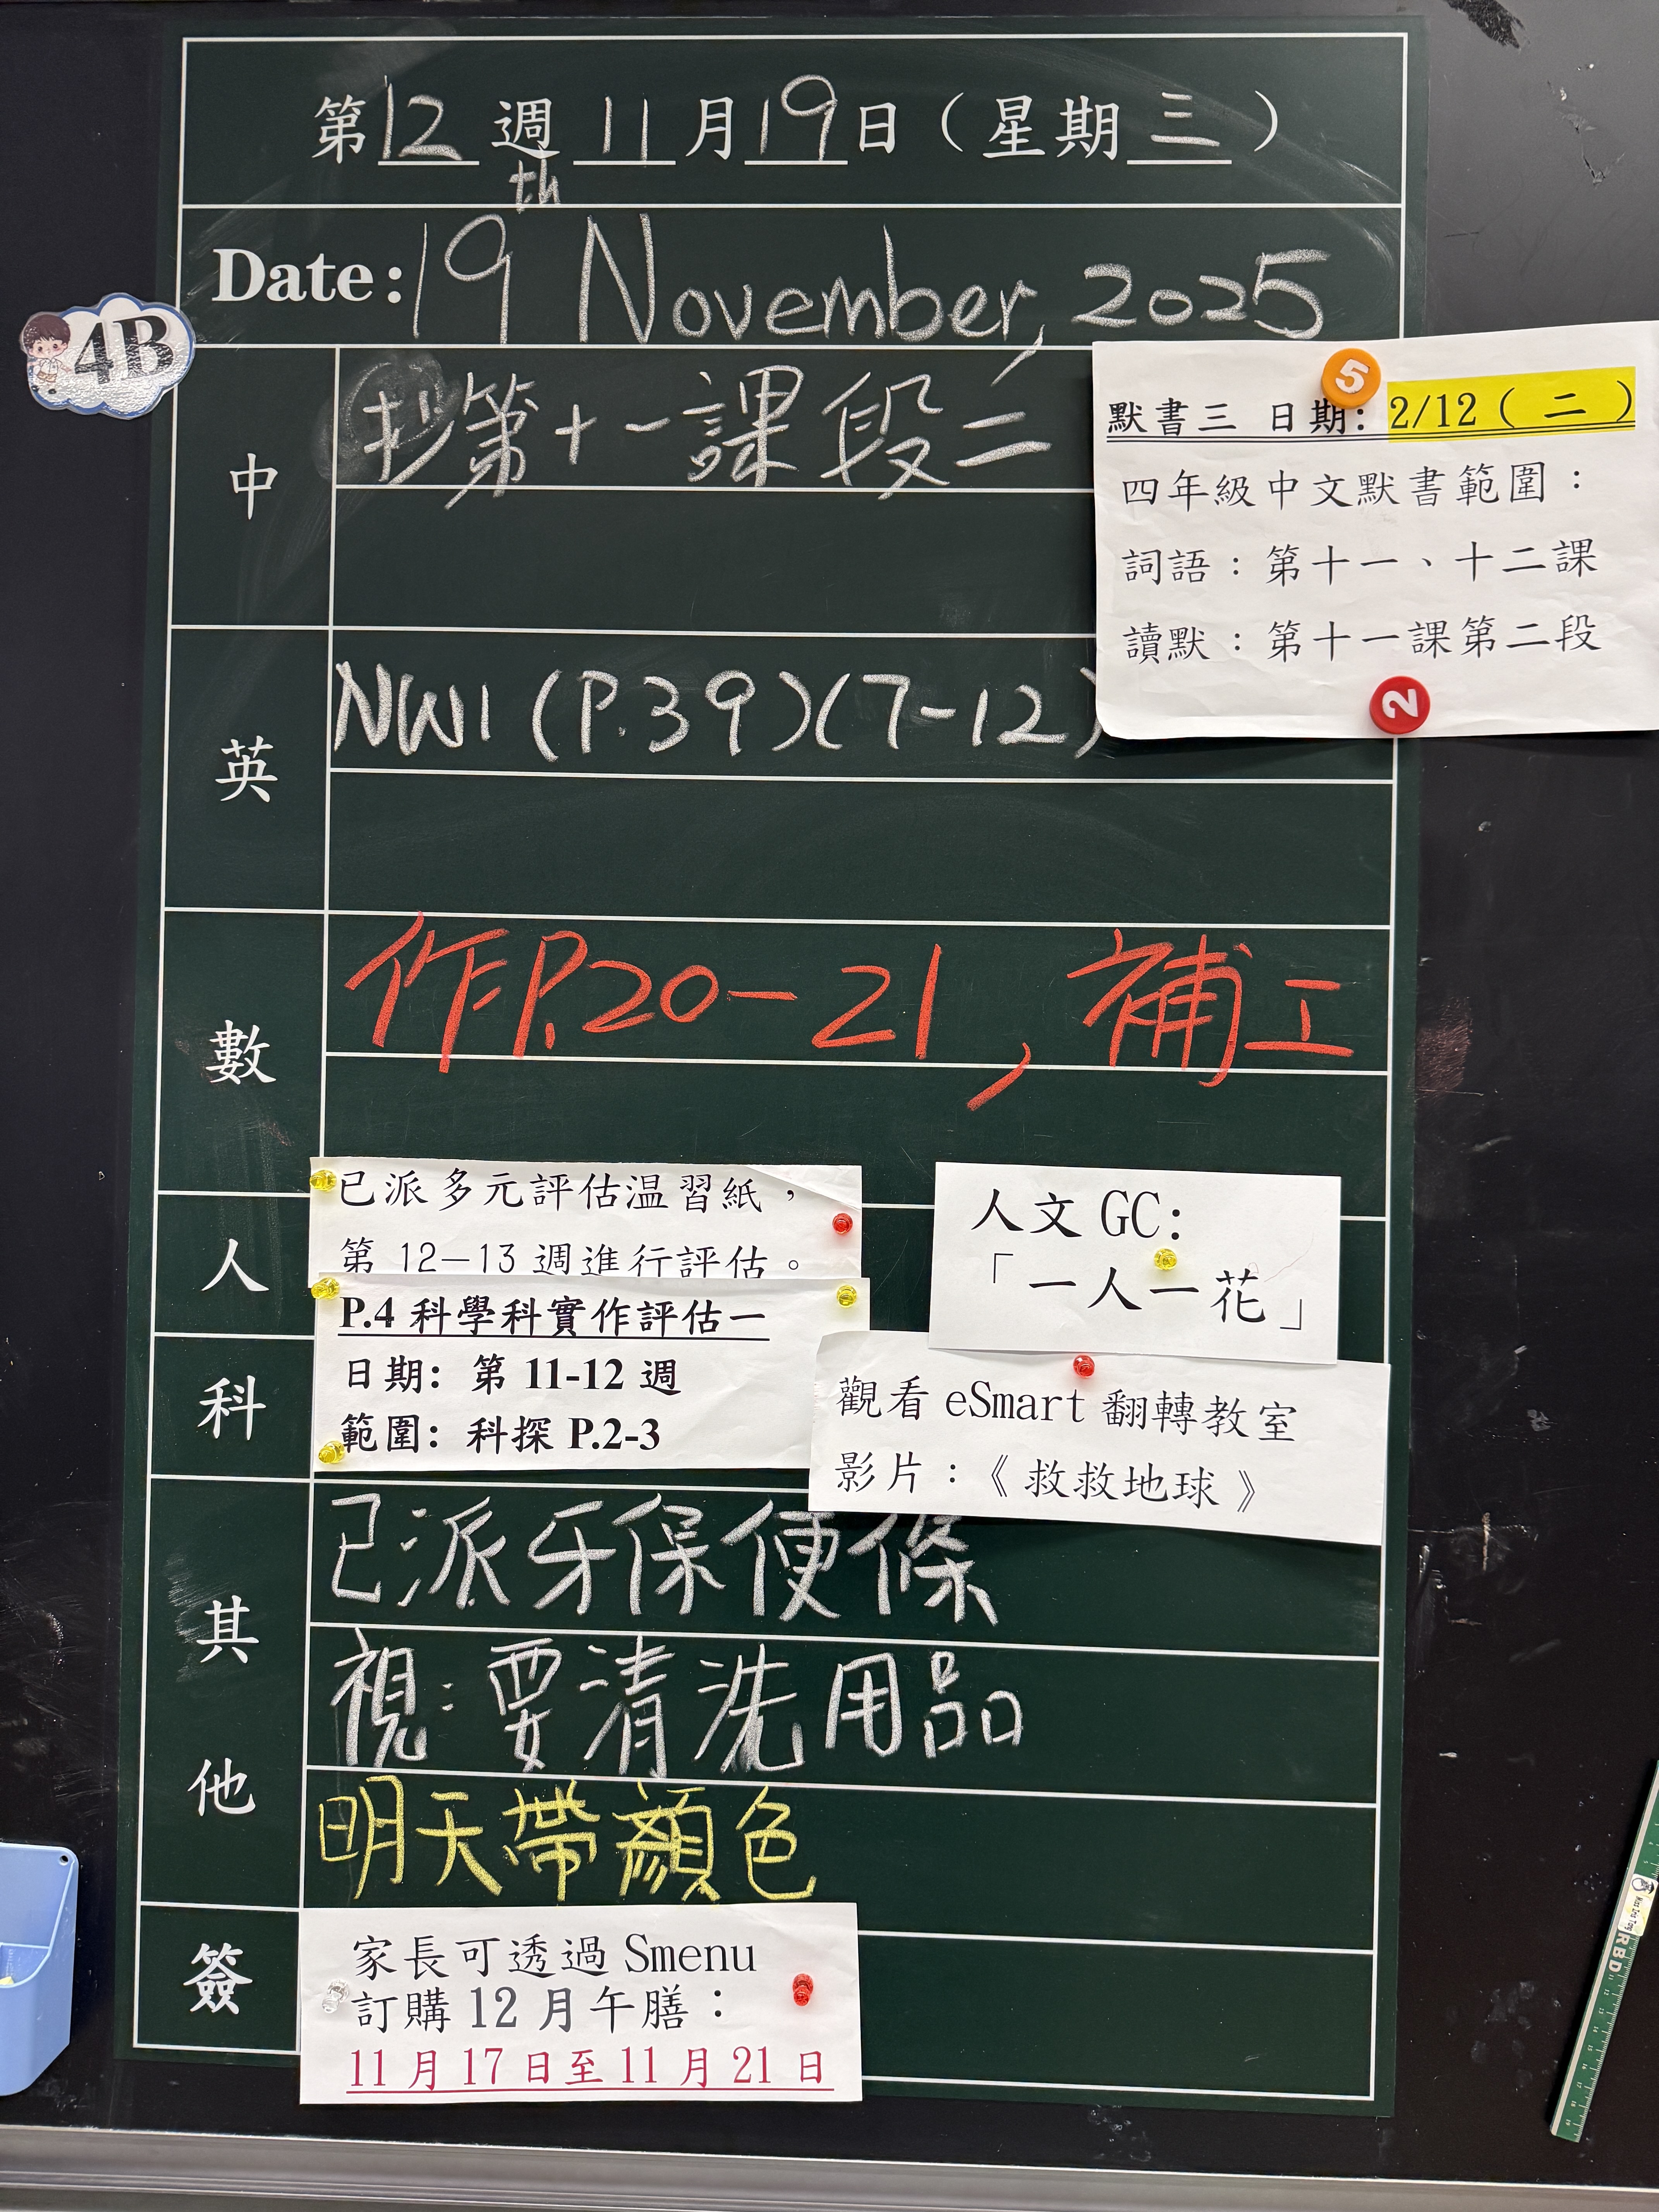 第12週 11月19日（星期三）
Date: 19th November, 2025
4B
中
抄第十一課段二
5
默書三 日期: 2/12（二）
四年級中文默書範圍：
詞語：第十一、十二課
讀默：第十一課第二段
2
英
NW1 (P.39)(7-12)
數
作P.20-21, 補工
人
已派多元評估温習紙，
第 12-13 週進行評估。
人文 GC:
「一人一花」
科
P.4 科學科實作評估一
日期: 第 11-12 週
範圍: 科探 P.2-3
觀看 eSmart 翻轉教室
影片：《救救地球》
其他
已派牙保便條
視:要清洗用品
明天帶顏色
簽
家長可透過 Smenu
訂購 12 月午膳：
11 月 17 日至 11 月 21 日
RBD